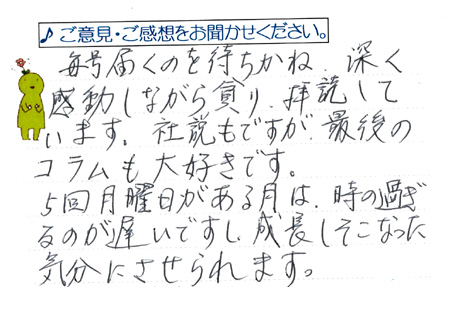 ♪ご意見・ご感想をお聞かせください。
毎号届くのを待ちかね、深く
感動しながら貪り、拝読して
います。社説もですが、最後の
コラムも大好きです。
5回月曜日がある月は、時の過ぎ
るのが遅いですし、成長しそこなった
気分にさせられます。